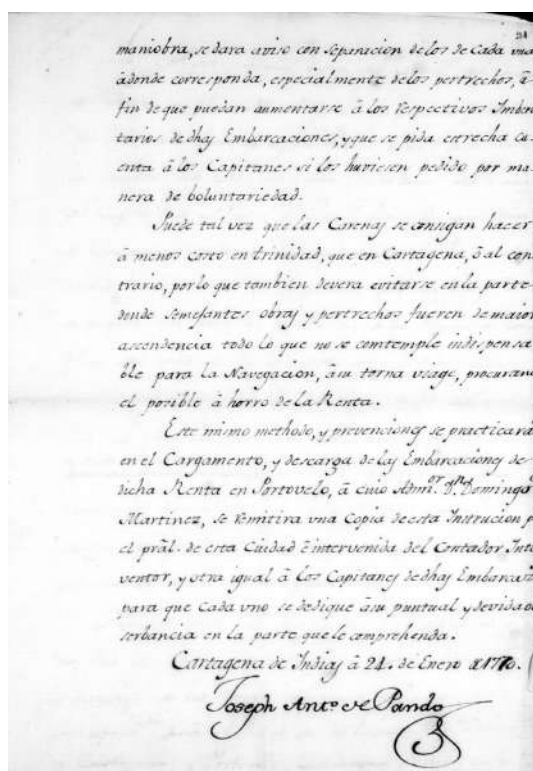 214
maniobra, se dara aviso con separacion de los de Cada vna
â donde corresponda, especialmente de los pertrechos, â
fin de que puedan aumentarse â los respectivos Imben
tarios de dhas Embarcaciones, y que se pida estrecha cu
enta â los Capitanes si los huviesen pedido por ma
nera de boluntariedad.
Puede tal vez que las Carenas se consigan hacer
â menos costo en trinidad, que en Cartagena, ô al con
trario, por lo que tambien devera evitarse en la parte
donde semejantes obras y pertrechos fueren de maior
ascendencia todo lo que no se comtemple indispensa
ble para la Navegacion, â su torna viage, procuran
el posible â horro de la Renta.
Este mismo methodo, y prevenciones se practicará
en el Cargamento, y descarga de las Embarcaciones de
dicha Renta en Portovelo, â cuio Admn.or D.n Domingo
Martinez, se remitira vna Copia de esta Instrucion p
el prâl. de esta Ciudad ê intervenida del Contador Inte
ventor, y otra igual â los Capitanes de dhas Embarcaz
para que Cada vno se dedique â su puntual y devida o
serbancia en la parte que le comprehenda.
Cartagena de Indias â 24. de Enero de 1770.
Joseph Ant.o de Pando